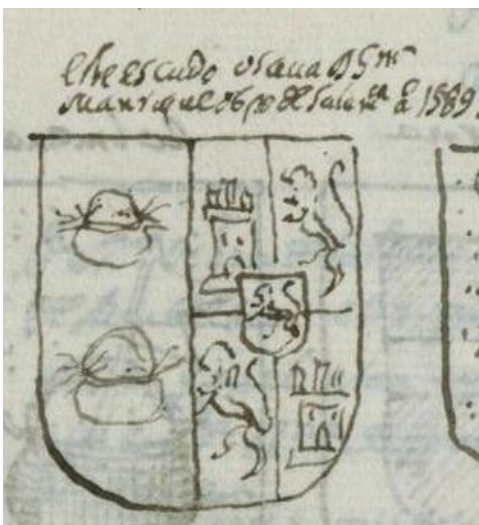 este escudo usaua D Gmo
manrique obpo de Salamca a 1589